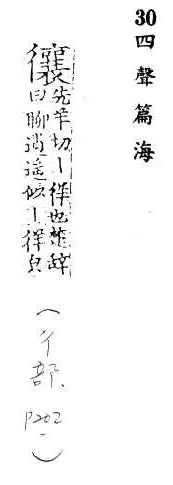 30四聲篇海
忀先羊切丨徉也楚辭
曰聊逍遙以丨徉皃
(彳部.P202)